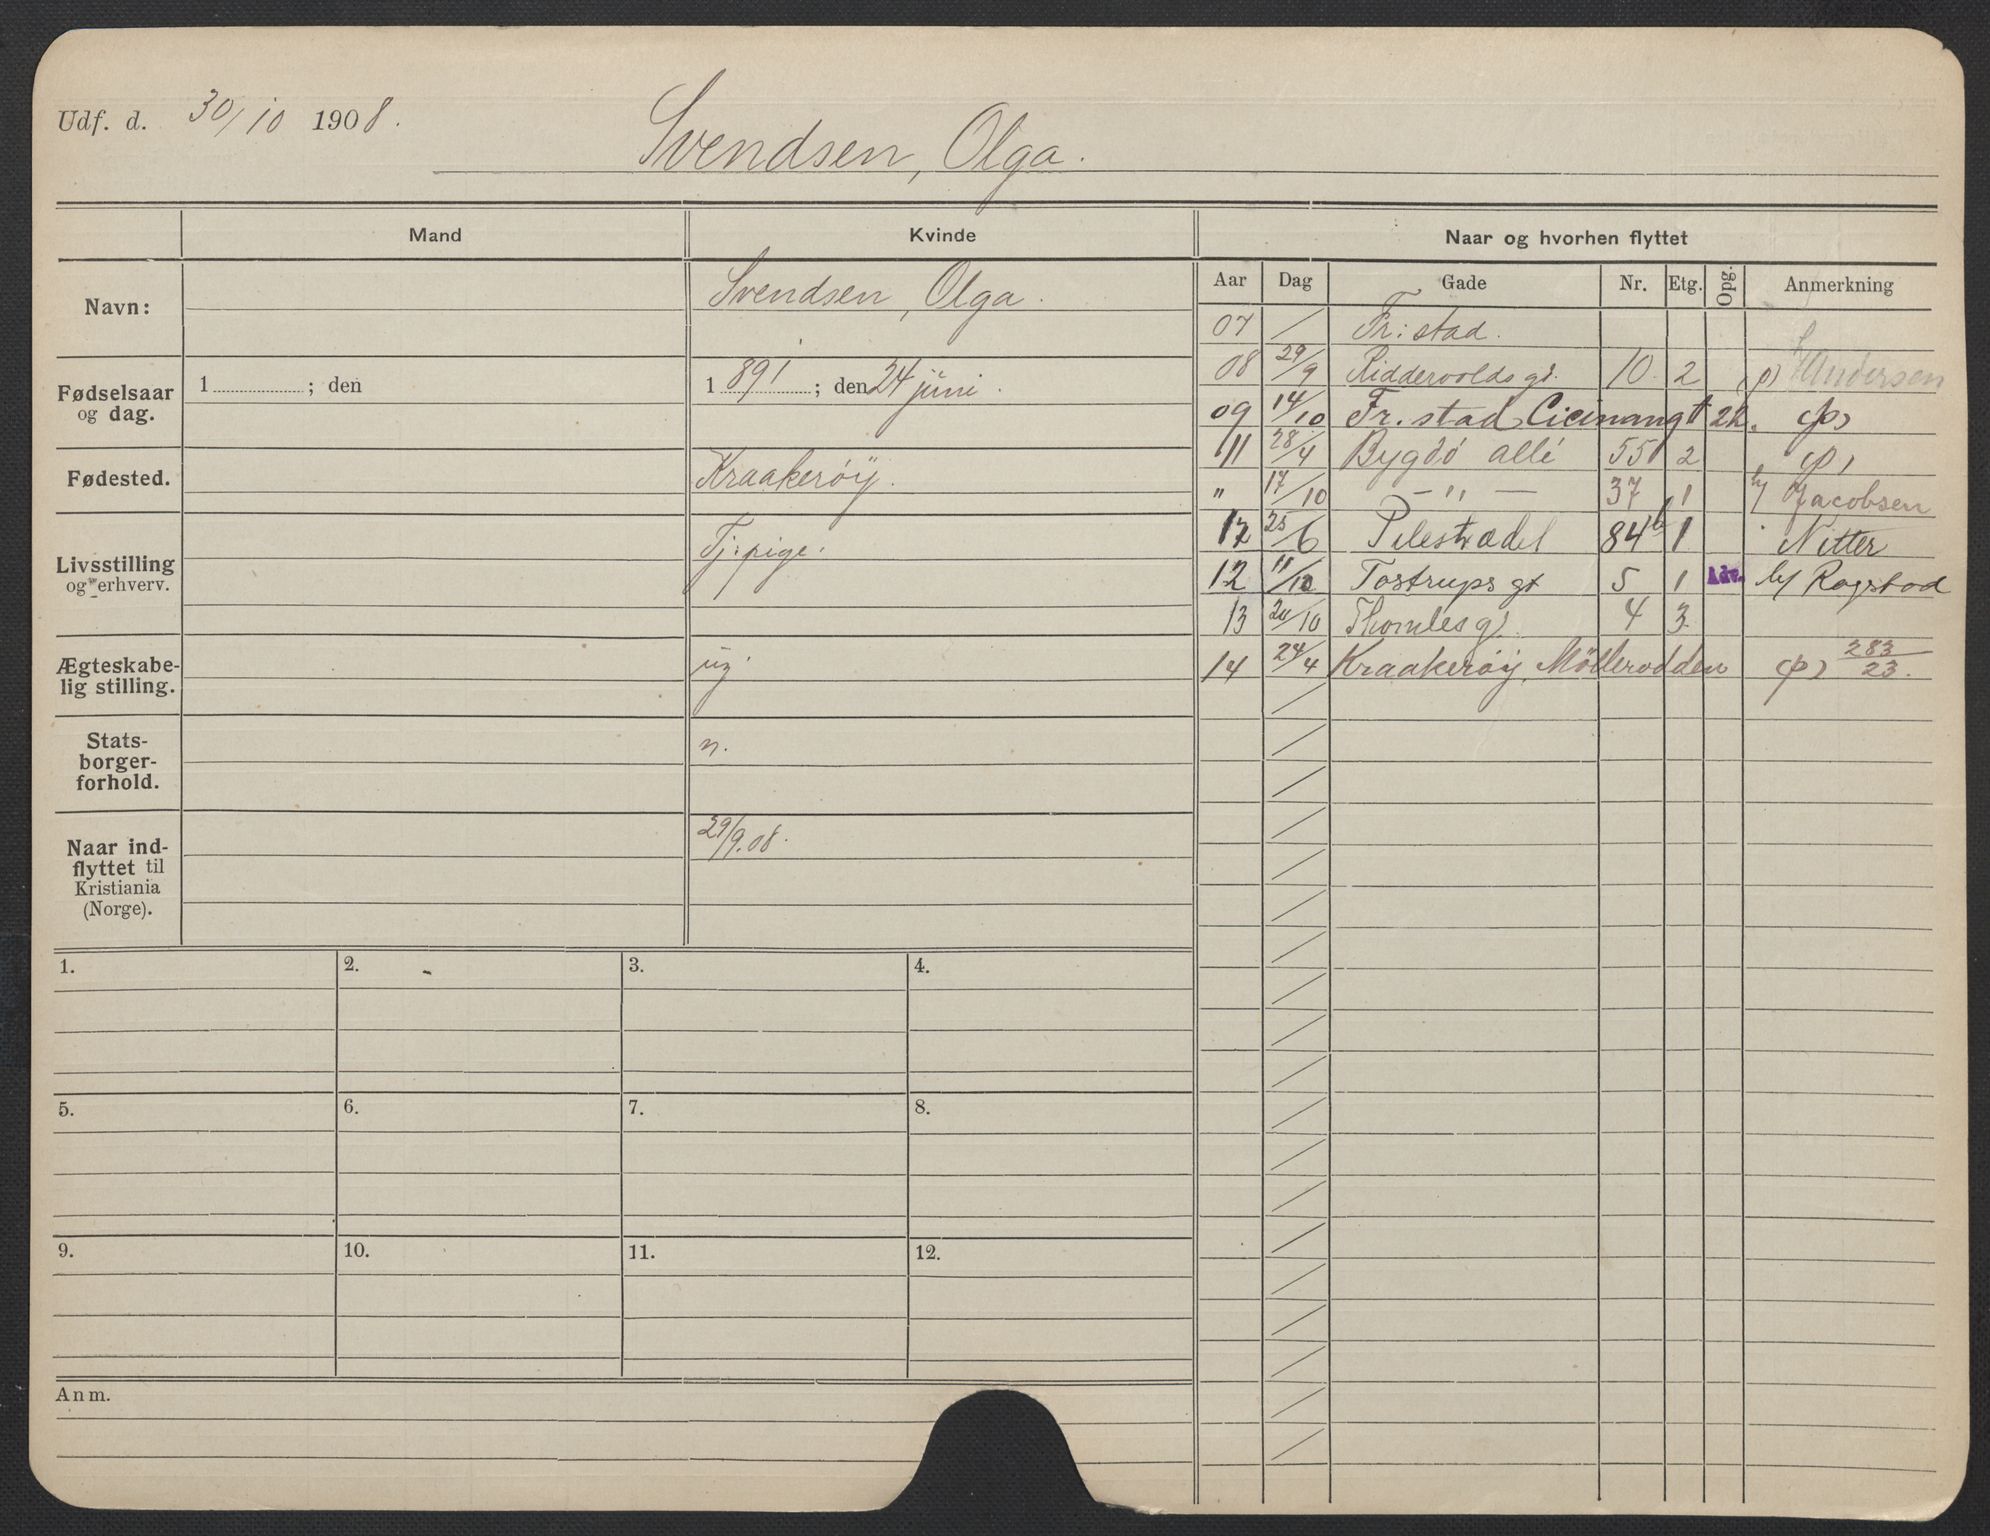 Udf. d. 30/10 1908.
Svendsen, Olga.
Mand
Kvinde
Naar og hvorhen flyttet
Navn:
Svendsen, Olga.
Fødselsaar og dag.
1 ; den
1 891 ; den 24 juni.
Fødested.
Kraakerøy.
Livsstilling og erhverv.
Tj: pige.
Ægteskabe-
lig stilling.
ug.
Stats-
borger-
forhold.
n.
Naar ind-
flyttet til
Kristiania
(Norge).
29/9.08.
Aar Dag Gade Nr. Etg. Opg. Anmerkning
07 / Fr: stad.
08 29/9 Riddervolds gt. 10 2 (p) h/ Andersen
09 14/10 Fr. stad Cicinangt 22. (p)
11 28/4 Bygdö allé 55 2 (p)
" 17/10 — " — 37 1 h/ Jacobsen
12 25/6 Pilestrædet 84b 1 Nitter
12 11/12 Tostrups gt 5 1 Adv. h/ Rogstad
13 20/10 Thomles gt. 4 3
14 24/4 Kraakerøy, Möllerodden (p) 283/23.
1. 2. 3. 4.
5. 6. 7. 8.
9. 10. 11. 12.
Anm.